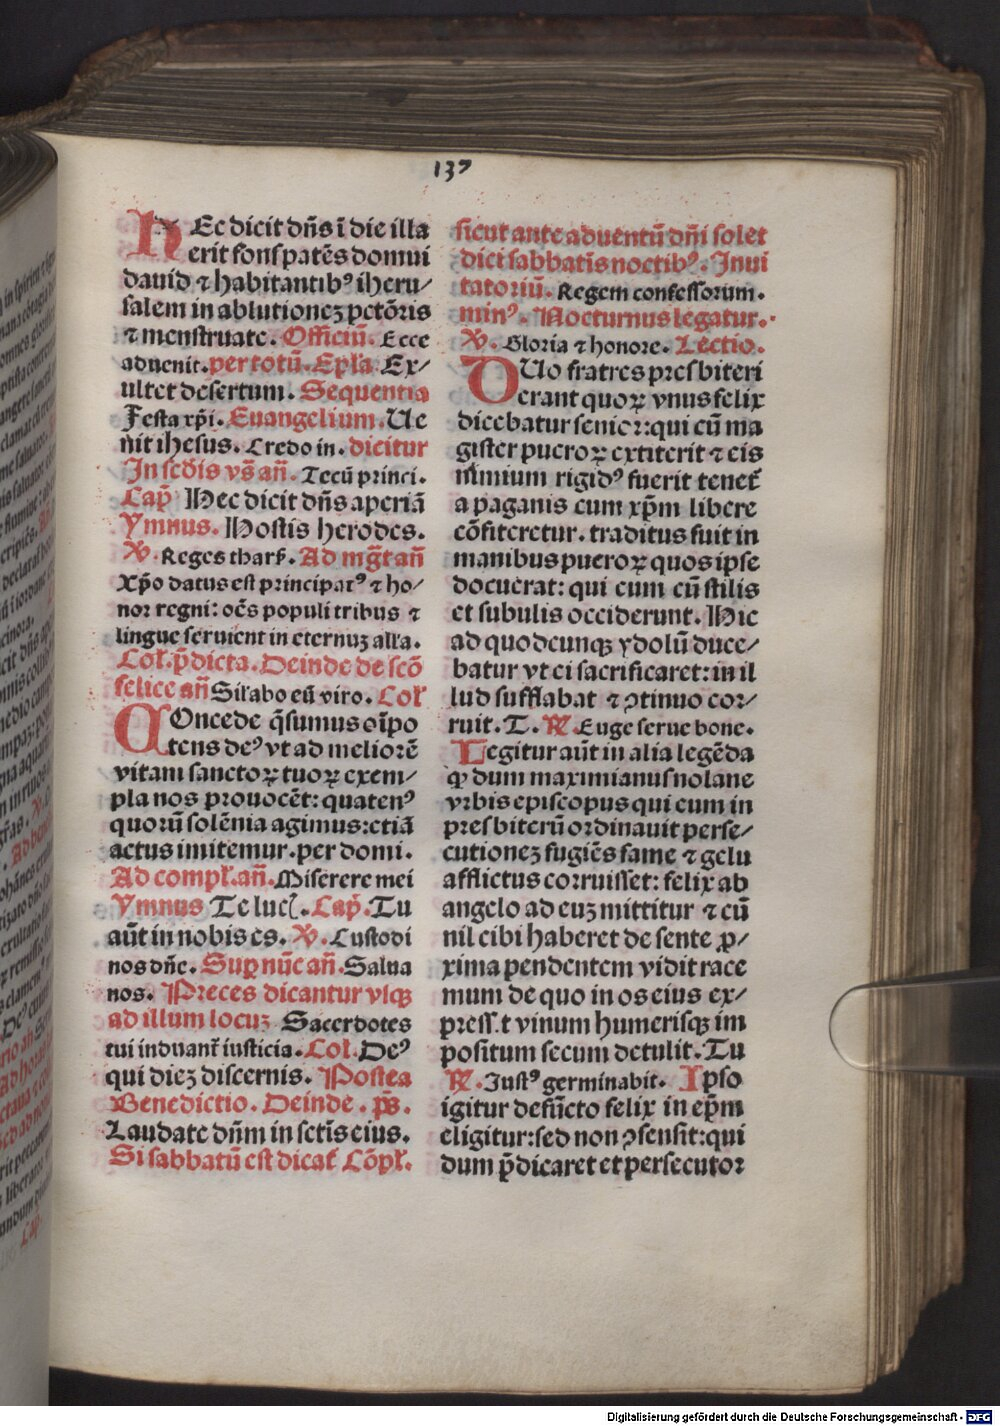 137
HEc dicit dn̄s ī die illa
erit fons patēs domui
dauid ⁊ habitantibꝰ iheru/
salem in ablutioneꝫ pctōris
⁊ menstruate. Officiū. Ecce
aduenit. per totū. Epl'a Ex/
ultet desertum. Sequentia
Festa xp̄i. Euangelium. Ue
nit ihesus. Credo in. dicitur
In scd̄is vs̄ an̄. Tecū princi.
Cap̄ Hec dicit dn̄s aperiā
Ymnus. Hostis herodes.
℣. Reges thars̄. Ad mḡt an̄
Xp̄o datus est principatꝰ ⁊ ho/
nor regni: oēs populi tribus ⁊
lingue seruient in eternuꝫ all'a.
Col'. p̄dicta. Deinde de scō
felice an̄ Sil'abo eū viro. Col'
COncede q̄sumus oīpo
tens deꝰ vt ad meliorē
vitam sanctoꝝ tuoꝝ exem/
pla nos prouocēt: quatenꝰ
quorū solēnia agimus: etiā
actus imitemur. per domi.
Ad compl'. an̄. Miserere mei
Ymnus Te luc. Cap̄. Tu
aūt in nobis es. ℣. Custodi
nos dn̄e. Suꝑ nūc an̄. Salua
nos. Preces dicantur vsqꝫ
ad illum locuꝫ Sacerdotes
tui induant' iusticia. Col'. Deꝰ
qui dieꝫ discernis. Postea
Benedictio. Deinde. ps̄.
Laudate dn̄m in sctīs eius.
Si sabbatū est dicat' Cōpl'.
sicut ante aduentū dn̄i solet
dici sabbatīs noctibꝰ. Inui
tatoriū. Regem confessorum.
minꝰ. Nocturnus legatur.
℣. Gloria ⁊ honore. Lectio.
DUo fratres presbiteri
erant quoꝝ vnus felix
dicebatur senior: qui cū ma
gister pueroꝝ extiterit ⁊ eis
nimium rigidꝰ fuerit tenet'
a paganis cum xp̄m libere
cōfiteretur. traditus fuit in
manibus pueroꝝ quos ipse
docuerat: qui eum cū stilis
et subulis occiderunt. Hic
ad quodcunqꝫ ydolū duce/
batur vt ei sacrificaret: in il
lud sufflabat ⁊ ꝯtinuo cor/
ruit. T. ℟. Euge serue bone.
Legitur aūt in alia legēda
ꝙ dum maximianus nolane
vrbis episcopus qui eum in
presbiterū ordinauit perse/
cutioneꝫ fugiēs fame ⁊ gelu
afflictus corruisset: felix ab
angelo ad euꝫ mittitur ⁊ cū
nil cibi haberet de sente ꝓ/
xima pendentem vidit race
mum de quo in os eius ex/
press.t vinum humerisqꝫ im
positum secum detulit. Tu
℟. Justꝰ germinabit. Ipso
igitur defūcto felix in ep̄m
eligitur: sed non ꝯsensit: qui
dum p̄dicaret et persecutor
Digitalisierung gefördert durch die Deutsche Forschungsgemeinschaft - DFG